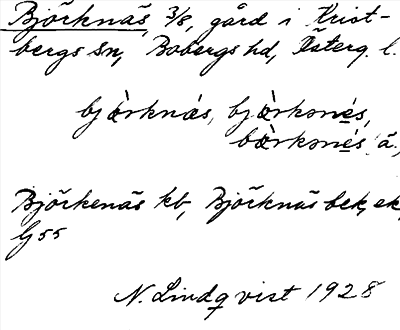 Björknäs, 3/8, gård i Krist-
bergs sn, Bobergs hd, Österg. l.
bjǿrknǽs, bjǿrkɔnés,
bǿrkɔnés ä.,
Björkenäs kb, Björknäs bek, ek,
G 55
N. Lindqvist 1928